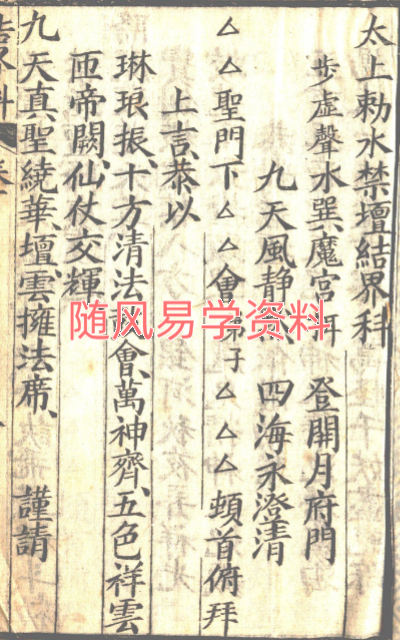 太上勅水禁壇結界科
步虛聲 水巽魔宮 登開月府門
九天風静 四海永澄清
△△聖門下△△會弟子△△△頓首俯拜
上言、恭以
琳琅振、十方清法會、萬神齊、五色祥雲
匝帝闕、仙仗交輝
九天真聖繞華壇、雲擁法席、 謹請
随风易学资料